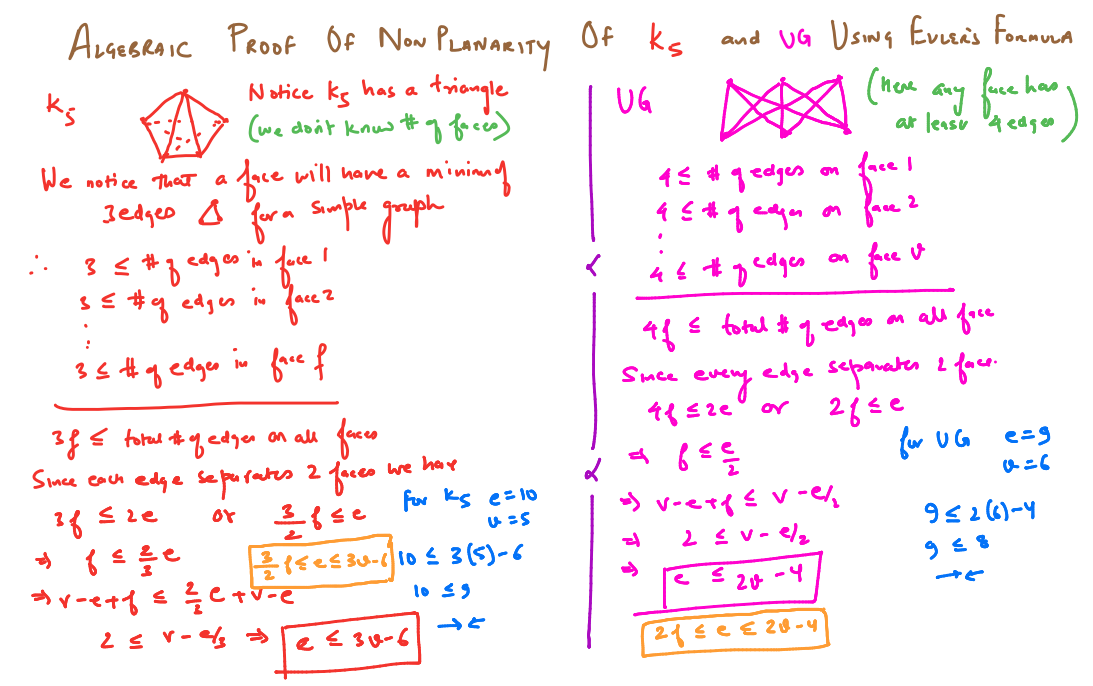 ALGEBRAIC PROOF OF NON PLANARITY OF K5 and UG USING EULER'S FORMULA
K5
Notice K5 has a triangle
(we don't know # of faces)
We notice that a face will have a minimum of
3 edges △ for a simple graph
∴ 3 ≤ # of edges in face 1
3 ≤ # of edges in face 2
⋮
3 ≤ # of edges in face f
3f ≤ total # of edges on all faces
Since each edge separates 2 faces we have
3f ≤ 2e or 3/2 f ≤ e
⇒ f ≤ 2/3 e
3/2 f ≤ e ≤ 3v-6
⇒ v-e+f ≤ 2/3 e + v-e
2 ≤ v-e/3 ⇒ e ≤ 3v-6
for K5 e=10
v=5
10 ≤ 3(5)-6
10 ≤ 9
→←
UG
(Here any face has
at least 4 edges)
4 ≤ # of edges on face 1
4 ≤ # of edges on face 2
⋮
4 ≤ # of edges on face v
4f ≤ total # of edges on all face
Since every edge separates 2 face.
4f ≤ 2e or 2f ≤ e
⇒ f ≤ e/2
⇒ v-e+f ≤ v-e/2
⇒ 2 ≤ v-e/2
⇒ e ≤ 2v-4
2f ≤ e ≤ 2v-4
for UG e=9
v=6
9 ≤ 2(6)-4
9 ≤ 8
→←